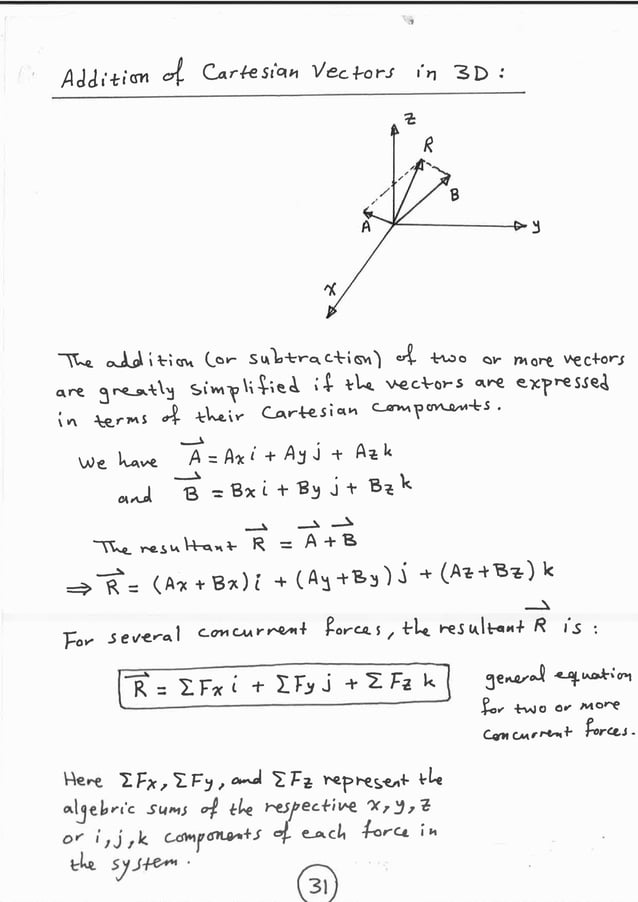 Addition of Cartesian Vectors in 3D :
z
R
B
A
y
x
The addition (or subtraction) of two or more vectors
are greatly simplified if the vectors are expressed
in terms of their Cartesian components.
We have A⃗ = Ax i + Ay j + Az k
and B⃗ = Bx i + By j + Bz k
The resultant R⃗ = A⃗ + B⃗
⇒ R⃗ = (Ax + Bx) i + (Ay + By) j + (Az + Bz) k
For several concurrent forces, the resultant R⃗ is :
R⃗ = ΣFx i + ΣFy j + ΣFz k
general equation
for two or more
concurrent forces.
Here ΣFx, ΣFy, and ΣFz represent the
algebric sums of the respective x, y, z
or i, j, k components of each force in
the system.
31